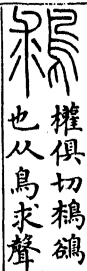 權俱切鵒
也从鳥求聲